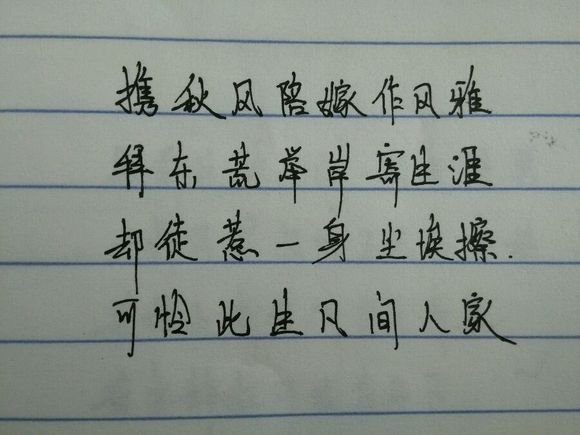 携秋风陪嫁作风雅
拜东荒崖岸寄生涯
却徒惹一身尘埃擦.
可怜此生凡间人家